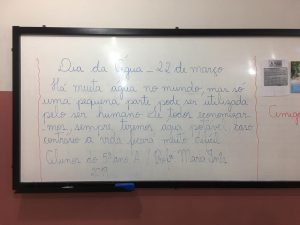 Dia da Água - 22 de março
Há muita água no mundo, mas só
uma pequena parte pode ser utilizada
pelo ser humano. Se todos economizar-
mos, sempre teremos água potável, caso
contrário a vida ficará muito difícil.
Alunos do 5º ano A / Profª Maria Inês